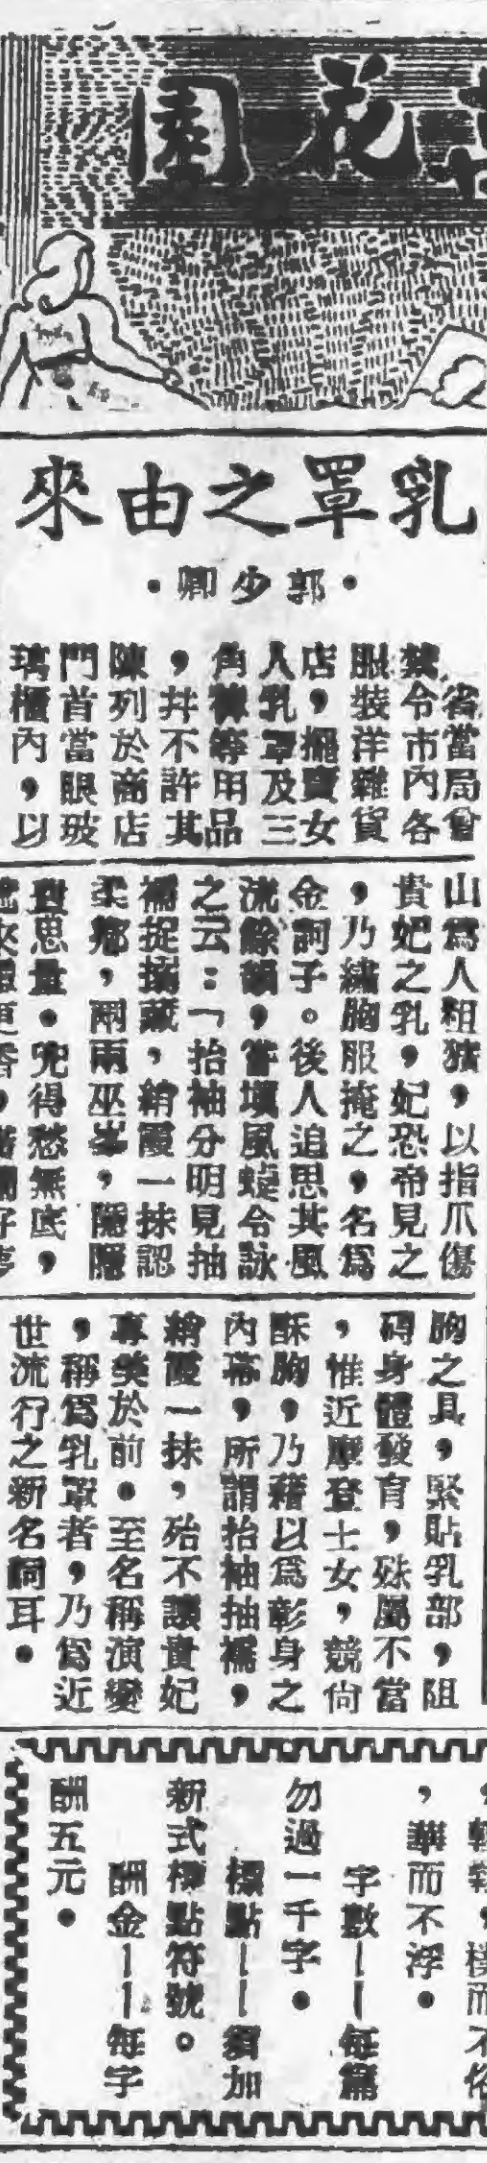 花園
乳罩之由來
•郭少卿•
省當局曾
禁令市內各
服裝洋雜貨
店，擺賣女
人乳罩及三
角褲等用品
，幷不許其
陳列於商店
門首當眼玻
璃櫃內，以
山爲人粗獷，以指爪傷
貴妃之乳，妃恐帝見之
，乃繡胸服掩之，名爲
金訶子。後人追思其風
流餘韻，嘗塡風蝶令詠
之云：「抬袖分明見抽
襦捉搦藏，綃霞一抹認
柔鄉，兩兩巫峯，隱隱
思量•兜得愁無底，
更香，
胸之具，緊貼乳部，阻
碍身體發育，殊屬不當
，惟近摩登士女，競尙
酥胸，乃藉以爲彰身之
內幕，所謂抬袖抽襦，
綃霞一抹，殆不讓貴妃
專美於前•至名稱演變
，稱爲乳罩者，乃爲近
世流行之新名詞耳•
，輕鬆，樸而不俗
，華而不浮•
字數——每篇
勿過一千字•
標點——須加
新式標點符號。
酬金——每字
酬五元•